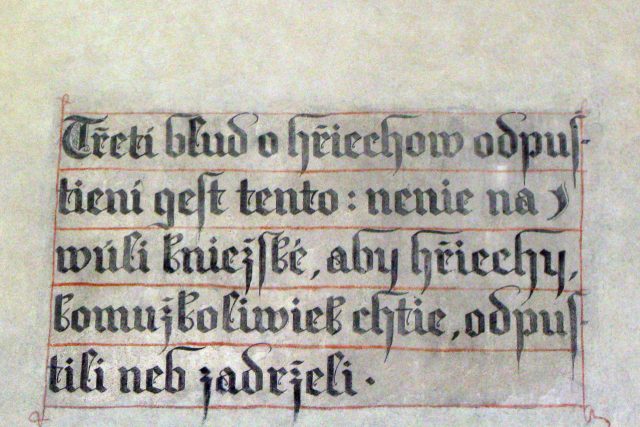 Třetí blud o hřiechow odpus-
tiení gest tento: nenie na
wúli kniežské, aby hřiechy,
komužkoliwiek chtie, odpus-
tili neb zadrželi.